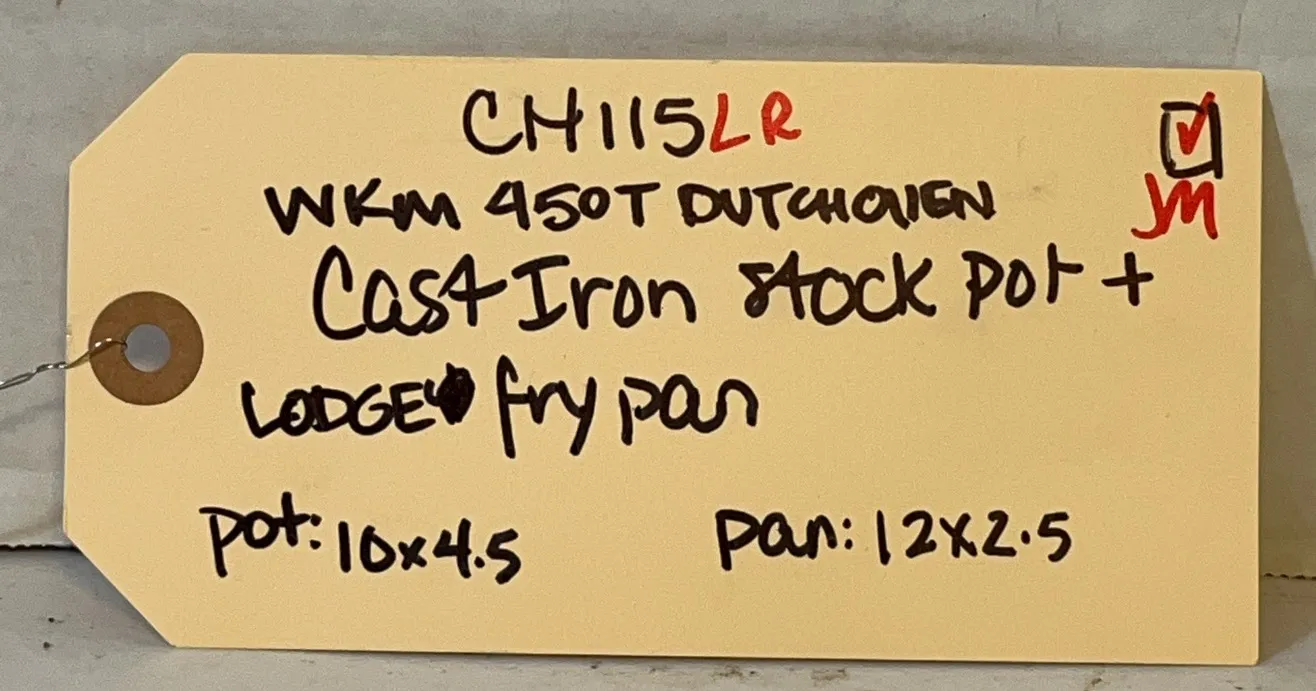 CH115LR
WKM 450T DUTCHOVEN
Cast Iron stock pot +
LODGE fry pan
pot: 10x4.5
pan: 12x2.5
JM